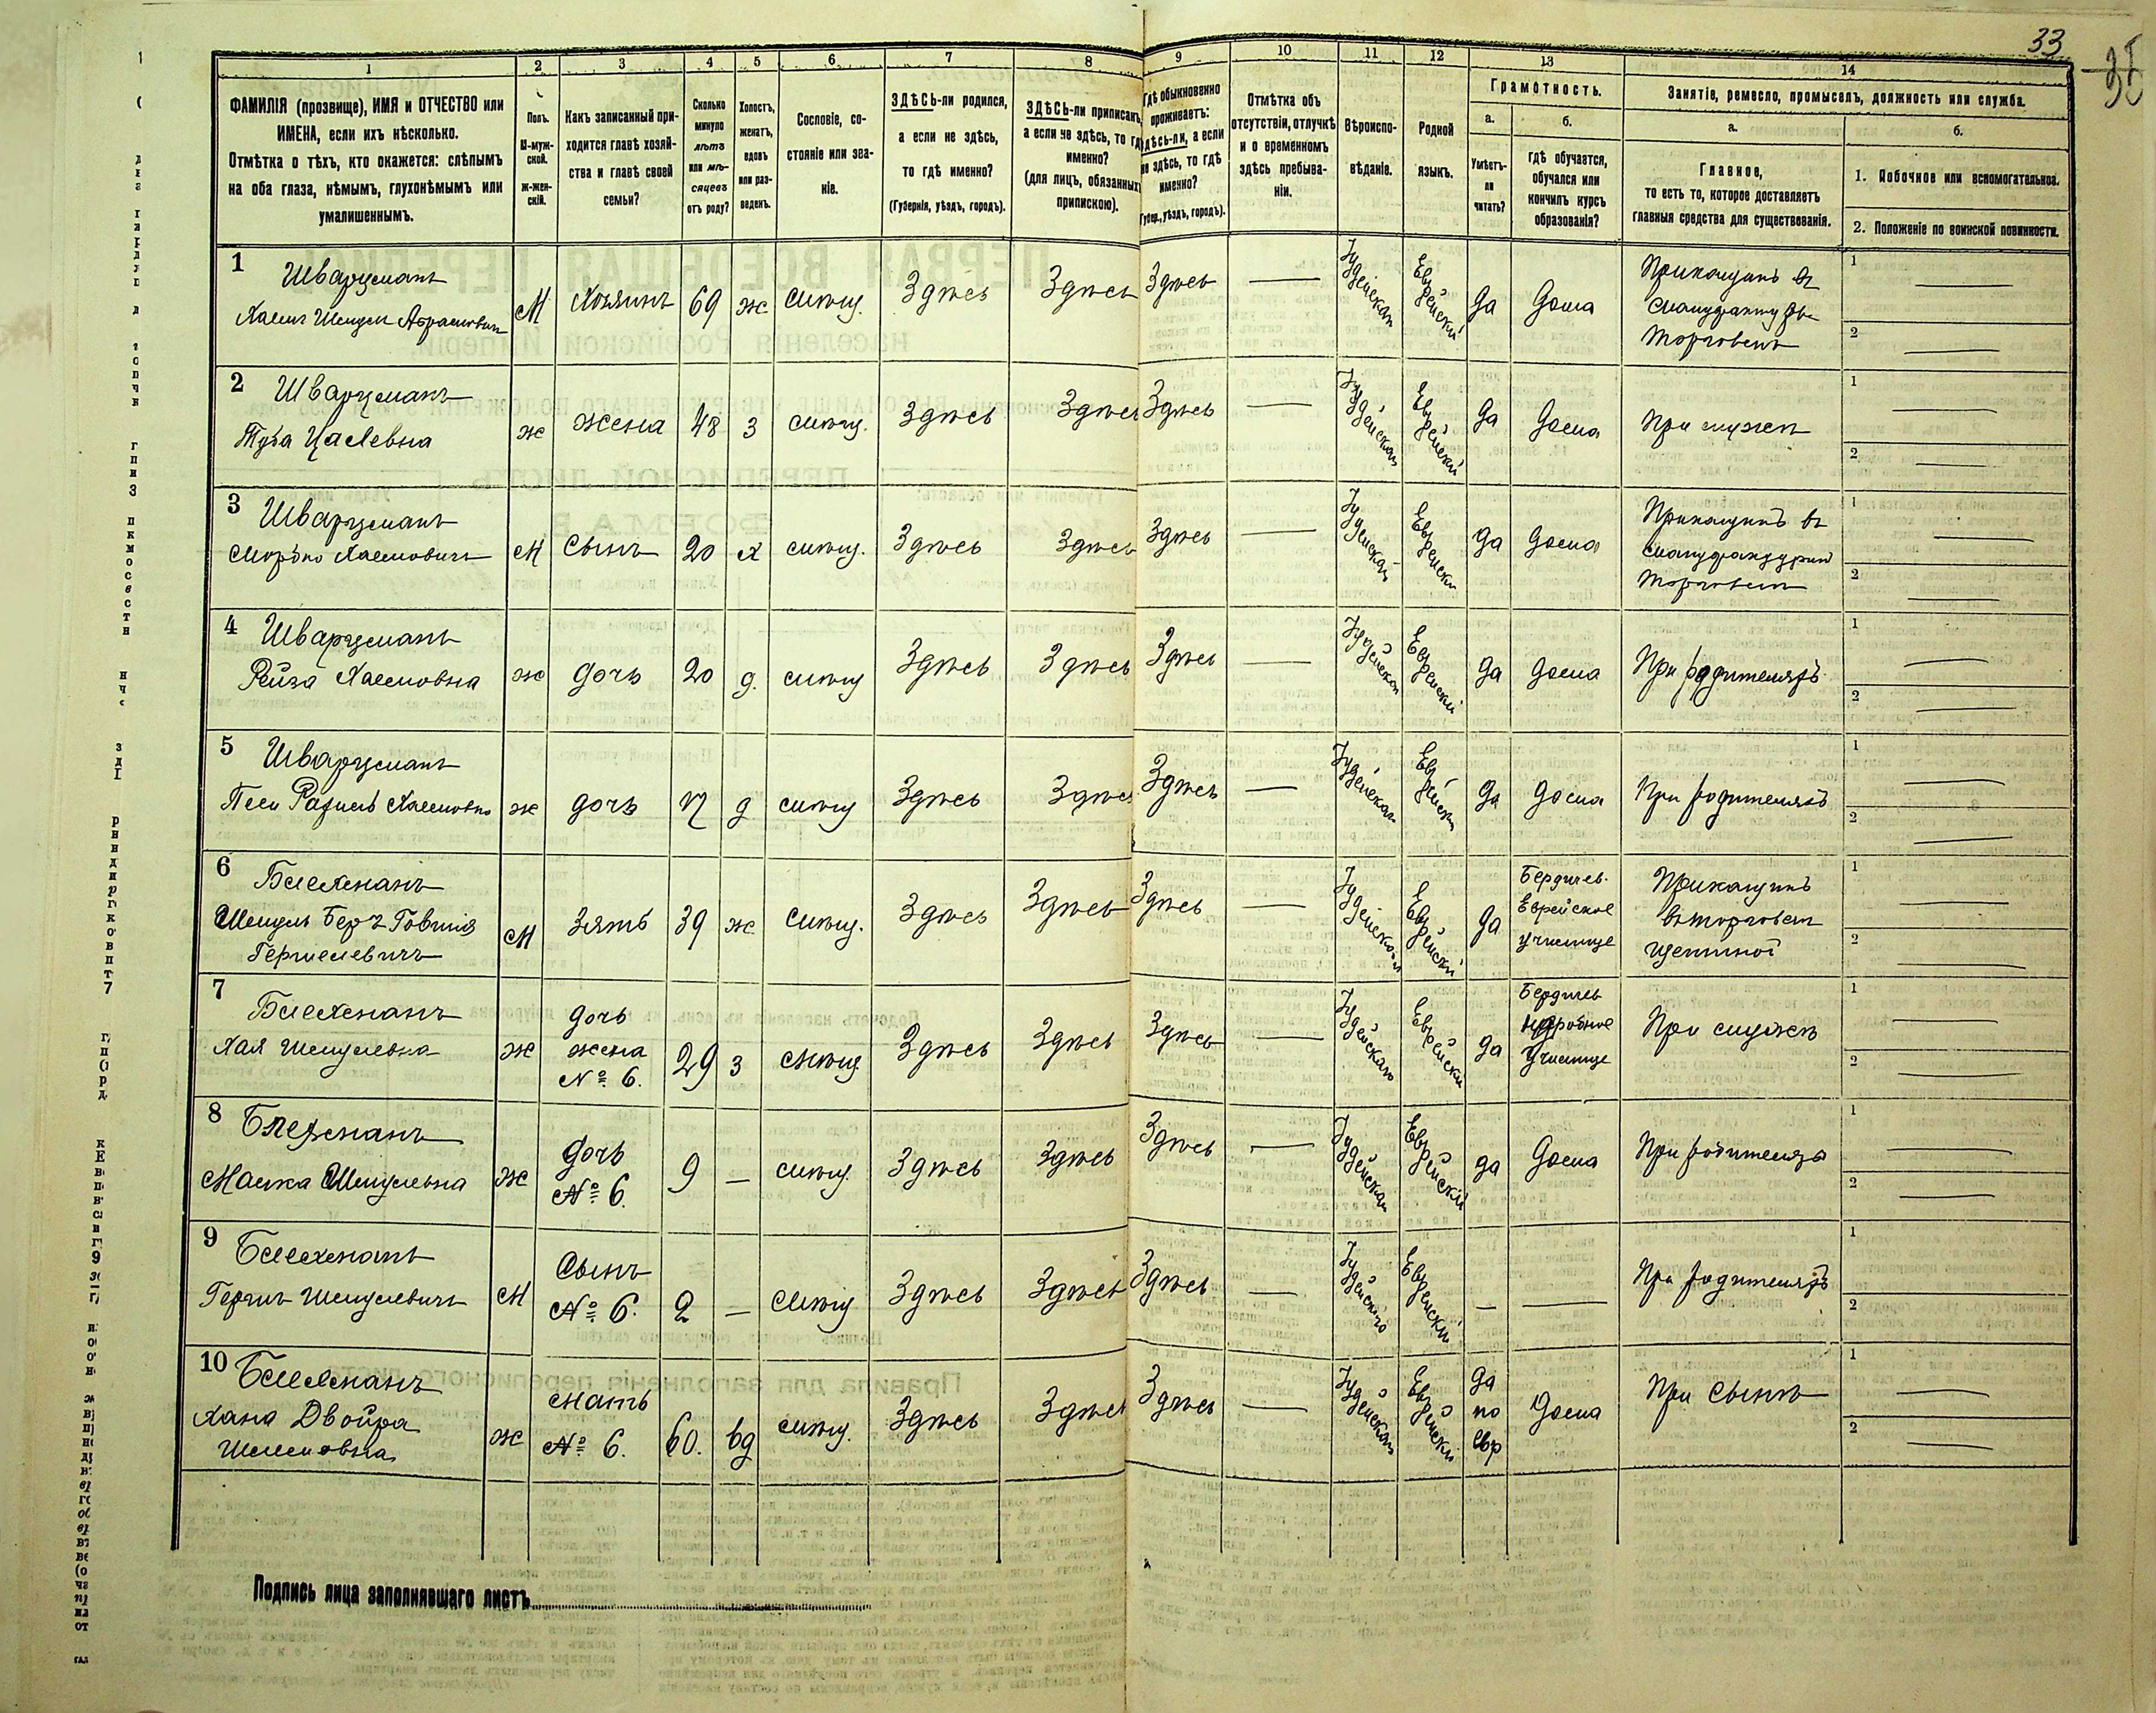 33
1 2 3 4 5 6 7 8 9 10 11 12 13 14
ФАМИЛІЯ (прозвище), ИМЯ и ОТЧЕСТВО или
ИМЕНА, если ихъ нѣсколько.
Отмѣтка о тѣхъ, кто окажется: слѣпымъ
на оба глаза, нѣмымъ, глухонѣмымъ или
умалишеннымъ.
Полъ.
М-муж-
ской.
Ж-жен-
скій.
Какъ записанный при-
ходится главѣ хозяй-
ства и главѣ своей
семьи?
Сколько
минуло
лѣтъ
или мѣ-
сяцевъ
отъ роду?
Холостъ,
женатъ,
вдовъ
или раз-
веденъ.
Сословіе, со-
стояніе или зва-
ніе.
ЗДѢСЬ-ли родился,
а если не здѣсь,
то гдѣ именно?
(Губернія, уѣздъ, городъ).
ЗДѢСЬ-ли приписанъ,
а если не здѣсь, то гдѣ
именно?
(для лицъ, обязанныхъ
припискою).
Гдѣ обыкновенно
проживаетъ:
здѣсь-ли, а если
не здѣсь, то гдѣ
именно?
(Губер., уѣздъ, городъ).
Отмѣтка объ
отсутствіи, отлучкѣ
и о временномъ
здѣсь пребыва-
ніи.
Вѣроиспо-
вѣданіе.
Родной
языкъ.
Грамотность.
а.
Умѣетъ-
ли
читать?
б.
гдѣ обучается,
обучался или
кончилъ курсъ
образованія?
Занятіе, ремесло, промыселъ, должность или служба.
а.
Главное,
то есть то, которое доставляетъ
главныя средства для существованія.
б.
1. Побочное или вспомогательное.
2. Положеніе по воинской повинности.
1 Шварцманъ
Хаимъ Шмуль Абрамовичъ
М Хозяинъ 69 ж мѣщ. Здѣсь Здѣсь Здѣсь — Іудейская Еврейскій да дома
Прикащикъ въ
мануфактур
торговлѣ
1 —
2 —
2 Шварцманъ
Туба Цалевна
ж жена 48 з мѣщ. Здѣсь Здѣсь Здѣсь — Іудейская Еврейскій да дома При мужѣ
1 —
2 —
3 Шварцманъ
Мордко Хаимовичъ
М Сынъ 20 х мѣщ. Здѣсь Здѣсь Здѣсь — Іудейская Еврейскій да дома
Прикащикъ въ
торговлѣ
1 —
2 —
4 Шварцманъ
Рейза Хаимовна
ж дочь 20 д. мѣщ Здѣсь Здѣсь Здѣсь — Іудейская Еврейскій да дома При родителяхъ
1 —
2 —
5 Шварцманъ
Песи Рахиль Хаимовна
ж дочь 17 д мѣщ Здѣсь Здѣсь Здѣсь — Іудейская Еврейскій да дома При родителяхъ
1 —
2 —
6 Блехманъ
Шмуль Беръ Товшія
Гершелевичъ
М Зять 39 ж мѣщ. Здѣсь Здѣсь Здѣсь — Іудейская Еврейскій да
Бердичев.
Еврейское
училище
Прикащикъ
въ торговлѣ
щетиной
1 —
2 —
7 Блехманъ
Хая Шмулевна
ж
дочь
жена
№ 6.
29 з мѣщ Здѣсь Здѣсь Здѣсь — Іудейская Еврейскій да
Бердичев
народное
училище
При мужѣ
1 —
2 —
8 Блехманъ
Малка Шмулевна
ж
дочь
№ 6.
9 — мѣщ. Здѣсь Здѣсь Здѣсь — Іудейская Еврейскій да дома При родителях
1 —
2 —
9 Блехманъ
Гершъ Шмулевичъ
М
Сынъ
№ 6.
2 — мѣщ Здѣсь Здѣсь Здѣсь — Іудейская Еврейскій — — При родителяхъ
1
2 —
10 Блехманъ
Хана Двойра
ж
мать
№ 6.
60. вд мѣщ. Здѣсь Здѣсь Здѣсь — Іудейская Еврейскій
да
по
евр
дома При сынѣ
1 —
2 —
Подпись лица заполнявшаго листъ